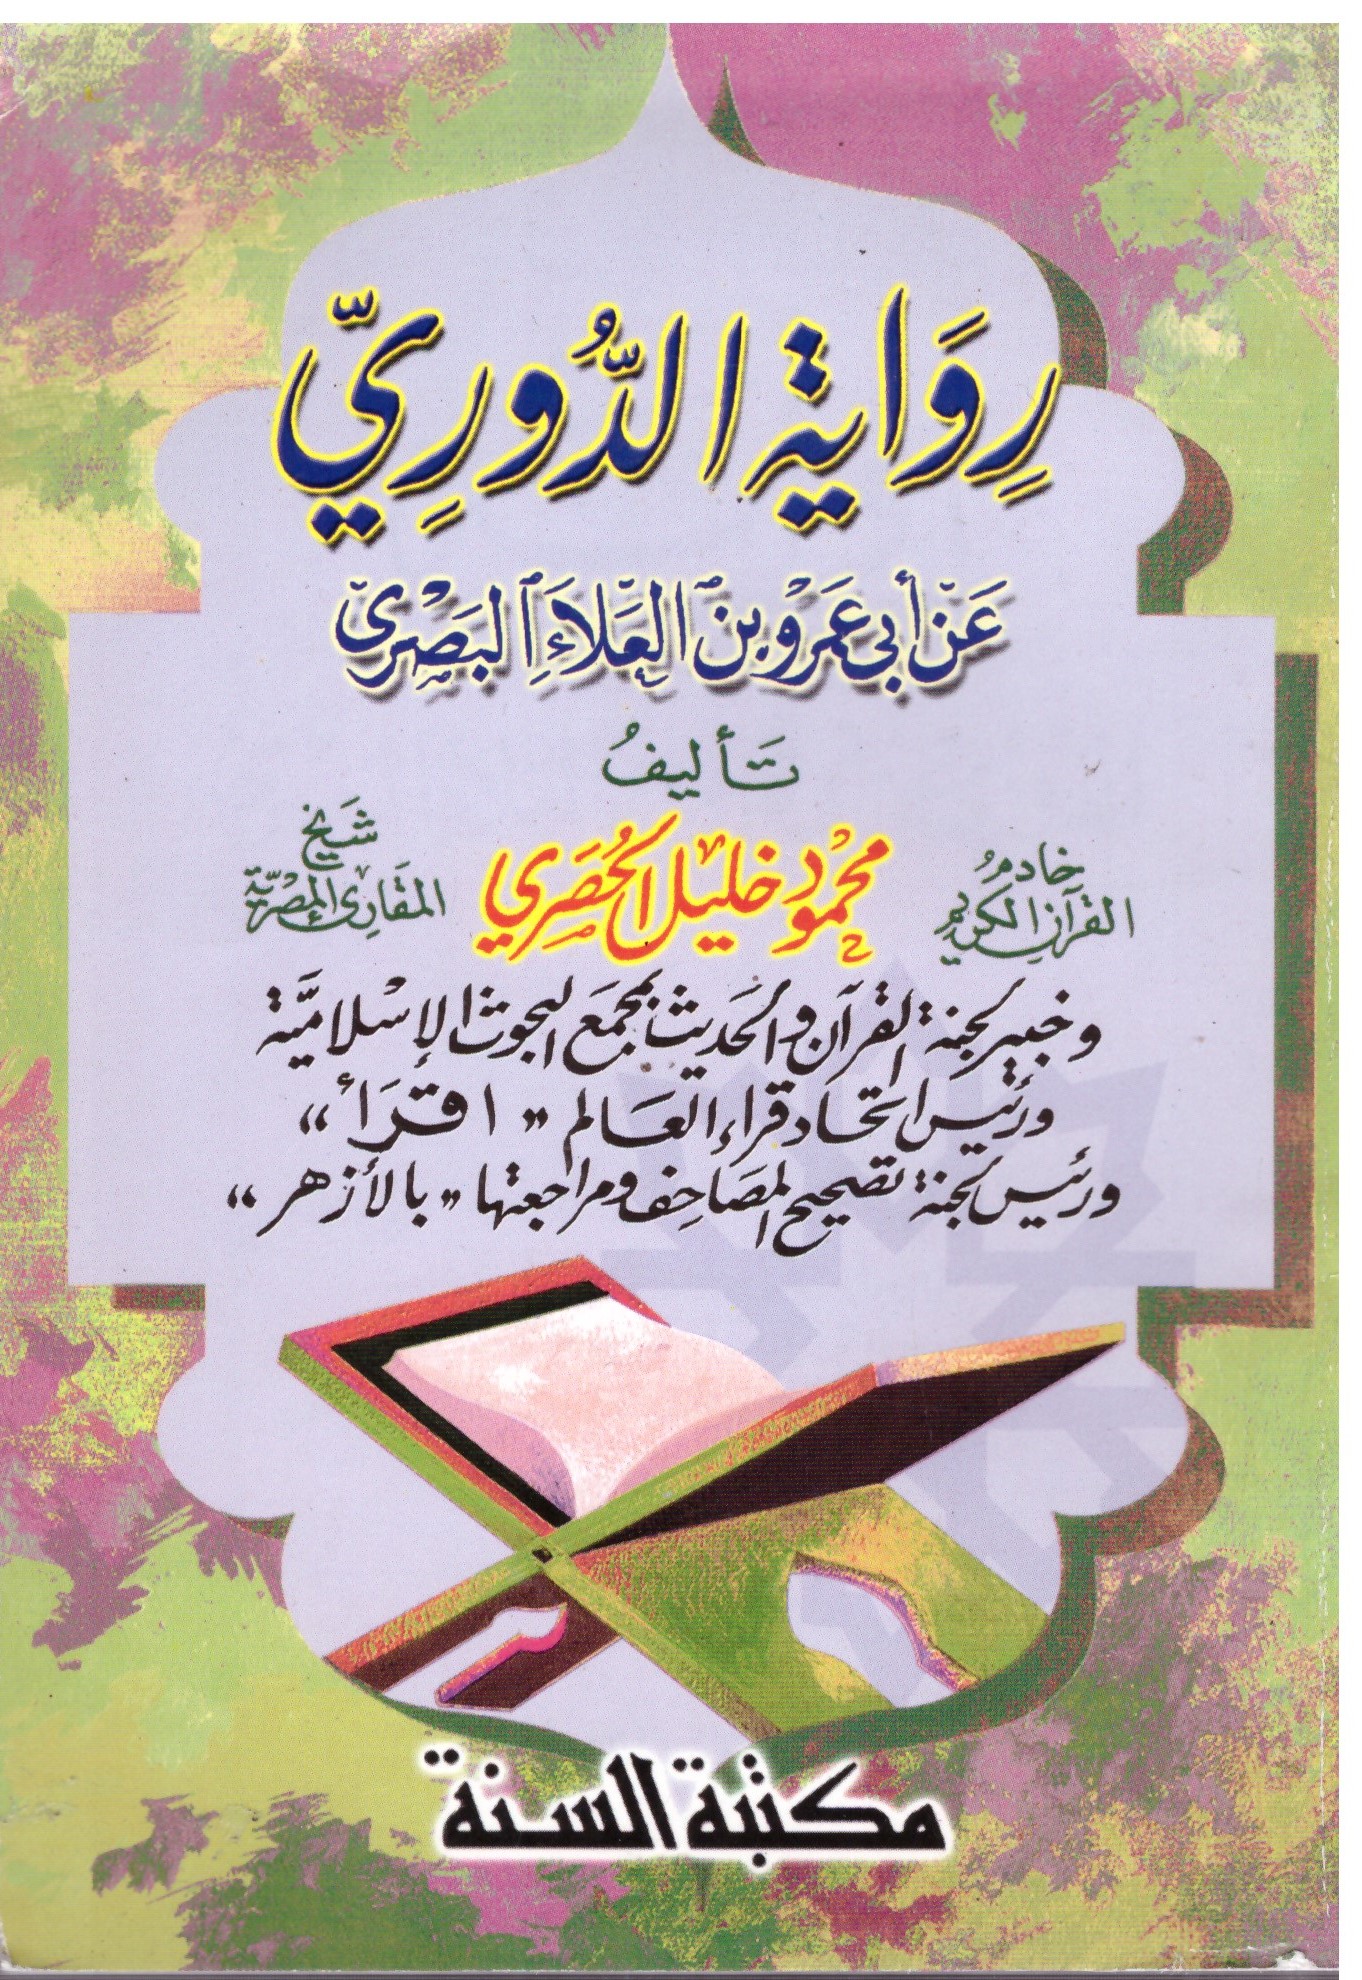 رِوَايَة الدُّورِيّ
عَنْ أَبِي عَمْرو بْنِ الْعَلَاءِ الْبَصْرِيّ
تَأليفُ
خادمُ القرآن الكريم
محمود خليل الحُصَرِي
شَيخ المقَارِئ المِصْريَّة
وخبير لجنة القرآن والحديث بمجمَع البحوث الإسْلاميَّة
ورئيس اتحاد قراء العَالم "اقرَأ"
ورئيس لجنة تصحيح المصَاحِف ومراجعتها "بالأزهر"
مكتبة السنة